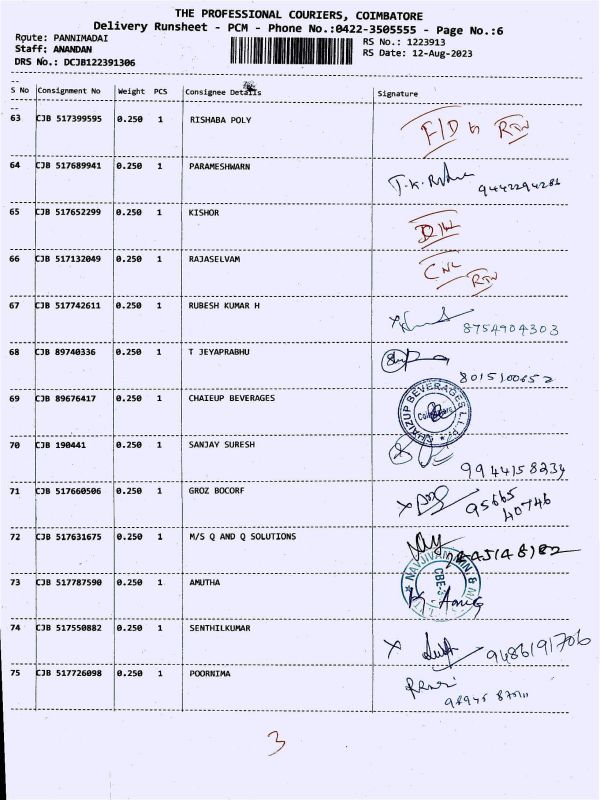 THE PROFESSIONAL COURIERS, COIMBATORE
Delivery Runsheet - PCM - Phone No.:0422-3505555 - Page No.:6
Route: PANNIMADAI
RS No.: 1223913
Staff: ANANDAN
RS Date: 12-Aug-2023
DRS No.: DCJB122391306
S No Consignment No Weight PCS Consignee Details Signature
63 CJB 517399595 0.250 1 RISHABA POLY
64 CJB 517689941 0.250 1 PARAMESHWARN
9442294286
65 CJB 517652299 0.250 1 KISHOR
66 CJB 517132049 0.250 1 RAJASELVAM
67 CJB 517742611 0.250 1 RUBESH KUMAR H
8754904303
68 CJB 89740336 0.250 1 T JEYAPRABHU
8015100652
69 CJB 89676417 0.250 1 CHAIEUP BEVERAGES
70 CJB 190441 0.250 1 SANJAY SURESH
9944158234
71 CJB 517660506 0.250 1 GROZ BOCORF
95665
40746
72 CJB 517631675 0.250 1 M/S Q AND Q SOLUTIONS
73 CJB 517787590 0.250 1 AMUTHA
74 CJB 517550882 0.250 1 SENTHILKUMAR
9486191706
75 CJB 517726098 0.250 1 POORNIMA
3